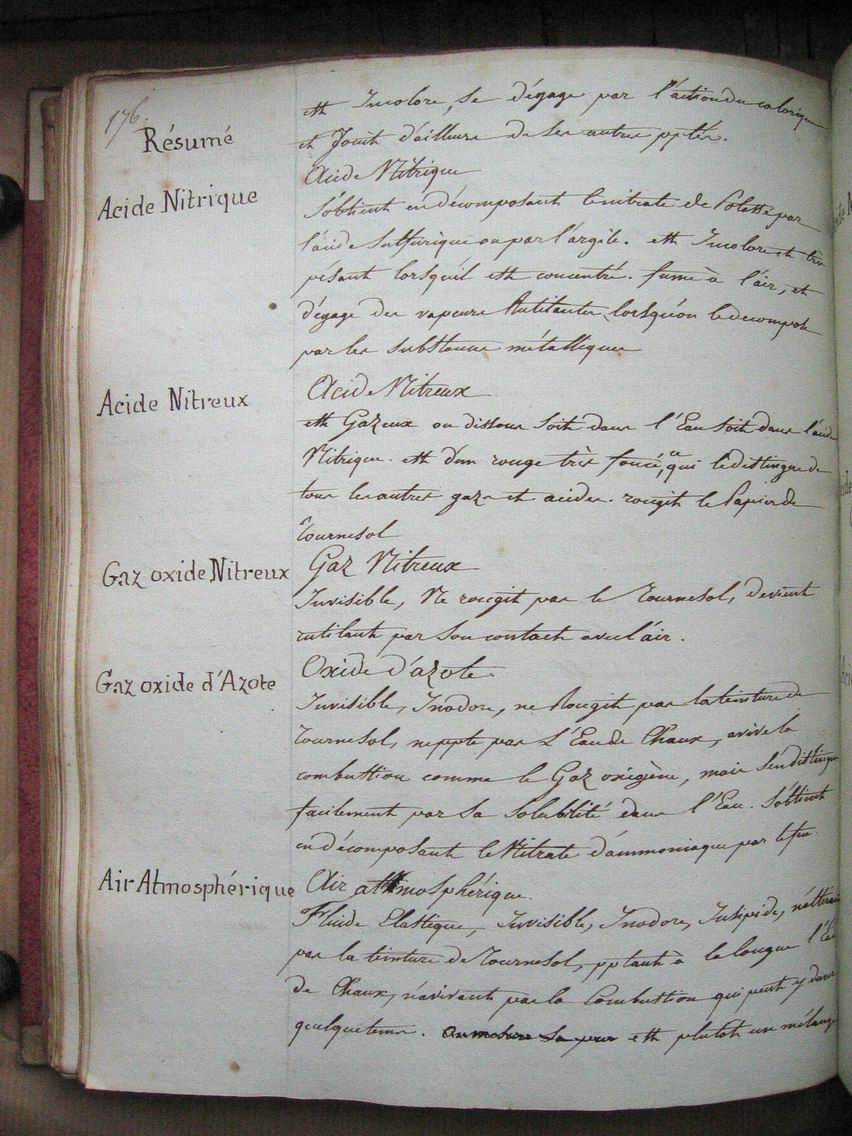 176.
est Incolore, se dégage par l'action du calorique
Résumé
et Jouit d'ailleurs de ses autres pptés.
Acide Nitrique
Acide Nitrique
S'obtient en décomposant le nitrate de Potasse par
l'acide sulfurique ou par l'argile. est Incolore et très
pésant lorsquil est concentré. fume à l'air, et
dégage des vapeurs Rutilantes lorsqu'on le décompose
par les substances métalliques
Acide Nitreux
Acide Nitreux
est Gazeux ou dissous soit dans l'Eau soit dans l'acide
Nitrique. est d'un rouge très foncé, ce qui le distingue de
tous les autres gazs et acides. rougit le Papier de
tournesol
Gaz oxide Nitreux
Gaz Nitreux
Invisible, Ne rougit pas le Tournesol, devient
rutilant par son contact avec l'air.
Gaz oxide d'Azote
Oxide d'azote.
Invisible, Inodore, ne Rougit pas la teinture de
Tournesol, neppte pas L'Eau de Chaux, avive la
combustion comme le Gaz oxigène, mais s'en distingue
facilement par sa solubilité dans l'Eau. S'obtient
en décomposant le Nitrate d'ammoniaque par le feu.
Air Atmosphérique
Air atmosphérique.
Fluide Elastique, Invisible, Inodore, Insipide,
pas la teinture de Tournesol, pptant à la longue l'Eau
de Chaux, n'avivant pas la Combustion qui peut y durer
quelque tems. est plutot un mélange